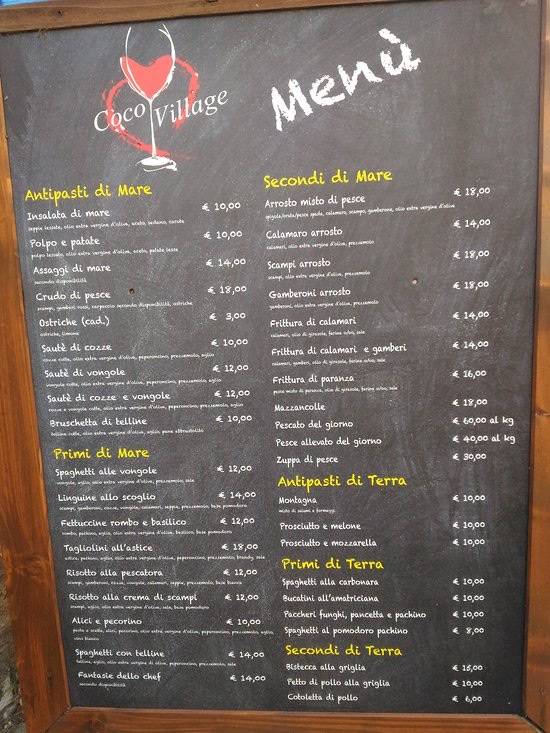 Coco Village
Menù
Antipasti di Mare
Insalata di mare € 10,00
seppie lessate, olio extra vergine d'oliva, aceto, sedano, carote
Polpo e patate € 10,00
polpo lessato, olio extra vergine d'oliva, aceto, patate lesse
Assaggi di mare € 14,00
secondo disponibilità
Crudo di pesce € 18,00
scampi, gamberi rossi, carpaccio secondo disponibilità, ostriche
Ostriche (cad.) € 3,00
ostriche, limone
Sautè di cozze € 10,00
cozze cotte, olio extra vergine d'oliva, peperoncino, prezzemolo, aglio
Sautè di vongole € 12,00
vongole cotte, olio extra vergine d'oliva, peperoncino, prezzemolo, aglio
Sautè di cozze e vongole € 12,00
cozze e vongole cotte, olio extra vergine d'oliva, peperoncino, prezzemolo, aglio
Bruschetta di telline € 10,00
telline cotte, olio extra vergine d'oliva, aglio, pane abbrustolito
Primi di Mare
Spaghetti alle vongole € 12,00
vongole, aglio, olio extra vergine d'oliva, peperoncino, prezzemolo, sale
Linguine allo scoglio € 14,00
scampi, gamberoni, cozze, vongole, calamari, seppie, prezzemolo, base pomodoro
Fettuccine rombo e basilico € 12,00
rombo, pachino, aglio, olio extra vergine d'oliva, basilico, base pomodoro
Tagliolini all'astice € 18,00
astice, pachino, aglio, olio extra vergine d'oliva, peperoncino, prezzemolo, brandy, sale
Risotto alla pescatora € 12,00
scampi, gamberoni, cozze, vongole, calamari, seppie, prezzemolo, base bianca
Risotto alla crema di scampi € 12,00
scampi, aglio, olio extra vergine d'oliva, sale, base pomodoro
Alici e pecorino € 10,00
pasta e alici, pecorino, olio extra vergine d'oliva, peperoncino, prezzemolo, aglio,
vino bianco
Spaghetti con telline € 14,00
telline, aglio, olio extra vergine di oliva, peperoncino, prezzemolo, sale
Fantasie dello chef € 14,00
secondo disponibilità
Secondi di Mare
Arrosto misto di pesce € 18,00
spigola/orata/pesce spada, calamaro, scampo, gamberone, olio extra vergine d'oliva
Calamaro arrosto € 14,00
calamari, olio extra vergine d'oliva, prezzemolo
Scampi arrosto € 18,00
scampi, olio extra vergine d'oliva, prezzemolo
Gamberoni arrosto € 18,00
gamberoni, olio extra vergine d'oliva, prezzemolo
Frittura di calamari € 14,00
calamari, olio di girasole, farina extra, sale
Frittura di calamari e gamberi € 14,00
calamari, gamberi, olio di girasole, farina extra, sale
Frittura di paranza € 16,00
pesce misto di paranza, olio di girasole, farina extra, sale
Mazzancolle € 18,00
Pescato del giorno € 60,00 al kg
Pesce allevato del giorno € 40,00 al kg
Zuppa di pesce € 30,00
Antipasti di Terra
Montagna € 10,00
misto di salumi e formaggi
Prosciutto e melone € 10,00
Prosciutto e mozzarella € 10,00
Primi di Terra
Spaghetti alla carbonara € 10,00
Bucatini all'amatriciana € 10,00
Paccheri funghi, pancetta e pachino € 10,00
Spaghetti al pomodoro pachino € 8,00
Secondi di Terra
Bistecca alla griglia € 15,00
Petto di pollo alla griglia € 10,00
Cotoletta di pollo € 6,00